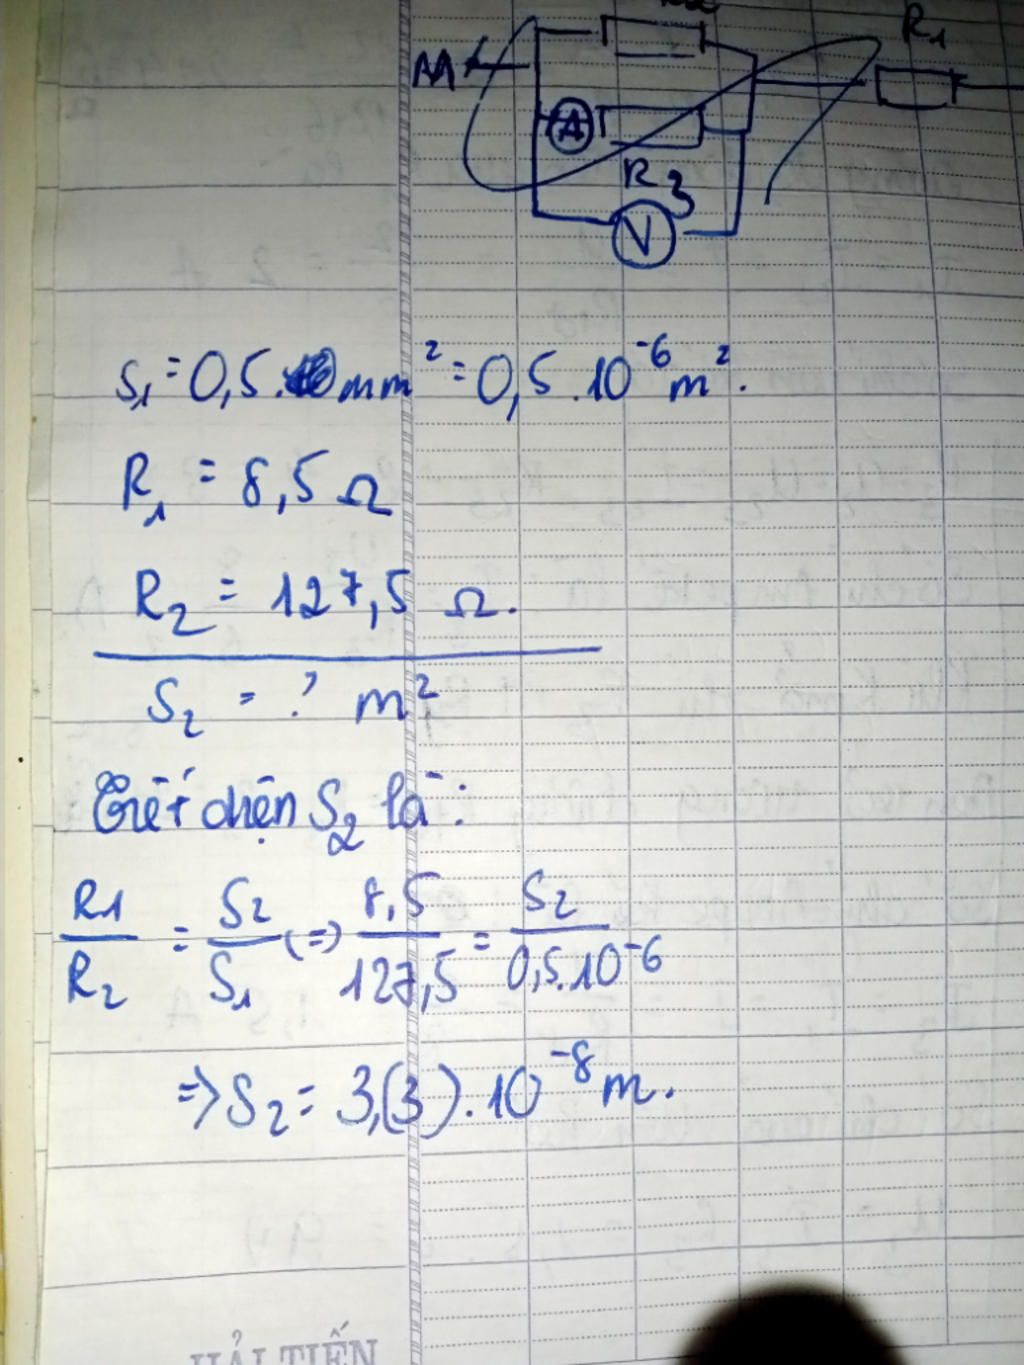 R2
R1
M
A
R3
V
S1 = 0,5. mm² = 0,5.10⁻⁶ m².
R1 = 8,5 Ω
R2 = 127,5 Ω.
S2 = ? m²
Tiết diện S2 là:
R1/R2 = S2/S1 (=) 8,5/127,5 = S2/0,5.10⁻⁶
=> S2 = 3,(3).10⁻⁸ m.
HẢI TIẾN